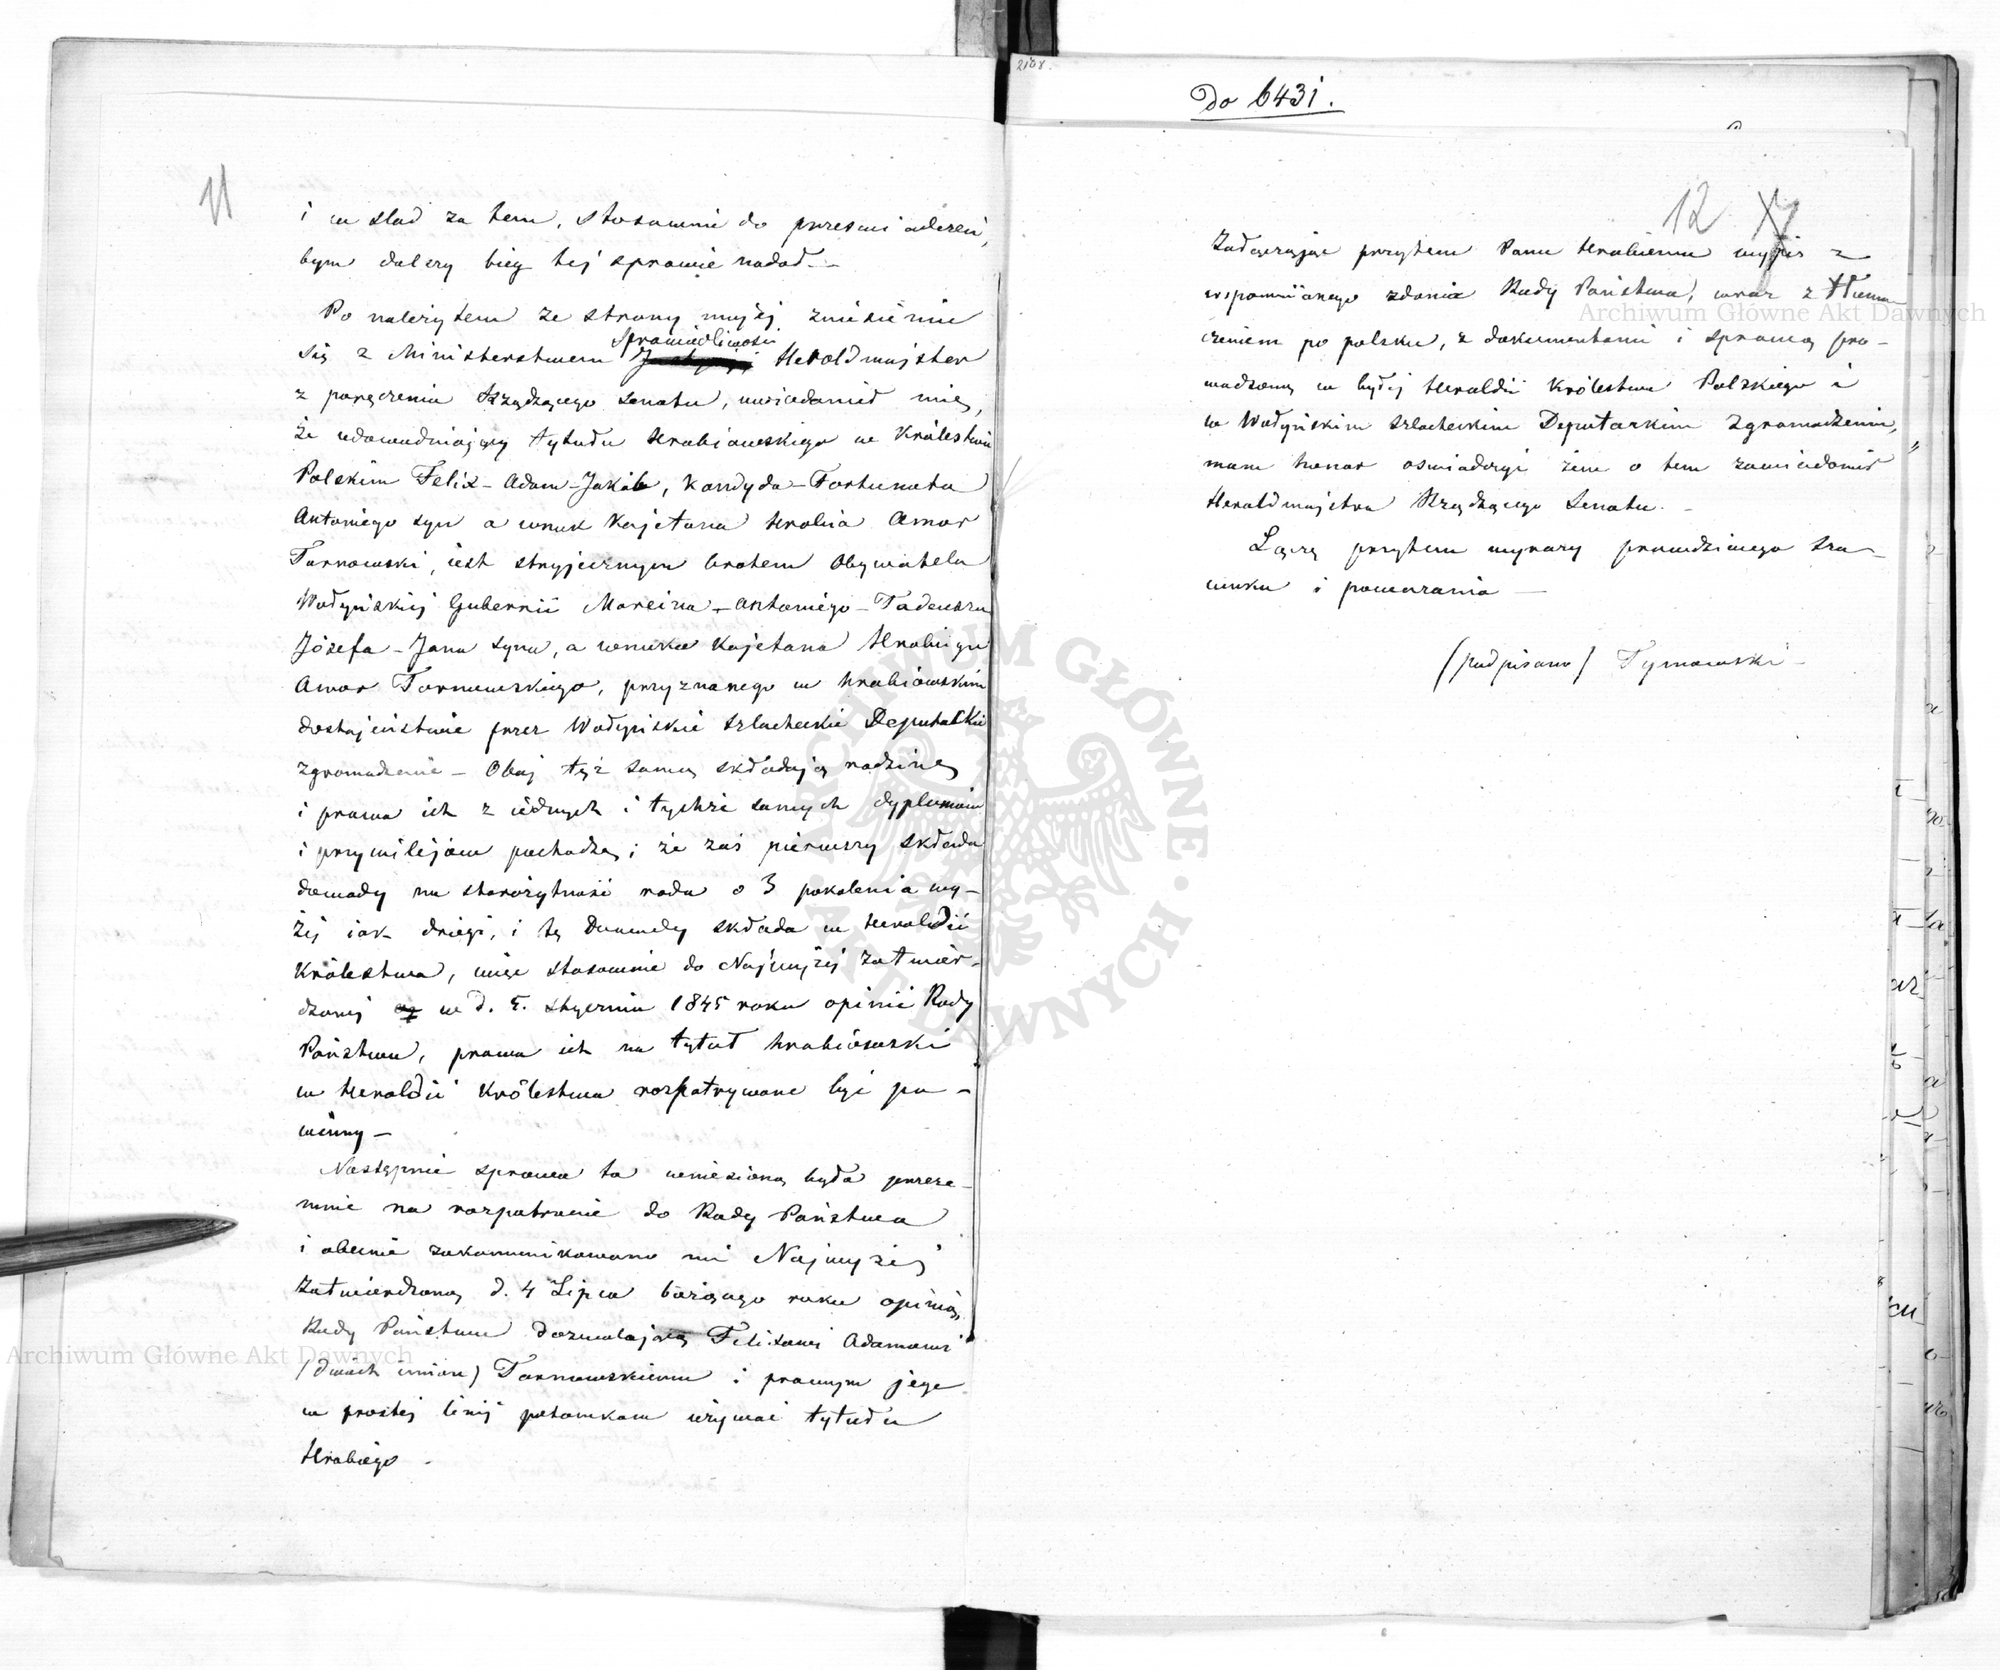 11
i w ślad za tem, stosownie do przeświadczeń,
bym dalszy bieg tej sprawie nadał –
Po należytem ze strony mojej zniesieniu
się z Ministerstwem Sprawiedliwości Heroldmajster
z poręczenia Rządzącego Senatu, uwiadomił mię,
że udowadniający tytułu Hrabiowskiego w Królestwie
Polskim Felix – Adam – Jakób, Kandyda – Fortunata
Antoniego syn a wnuk Kajetana Hrabia Amor
Tarnowski, jest stryjecznym bratem Obywatela
Wołyńskiej Gubernii Marcina – Antoniego – Tadeusza
Józefa – Jana syna, a wnuka Kajetana Hrabiego
Amor Tarnowskiego, przyznanego w hrabiowskim
dostojeństwie przez Wołyńskie szlacheckie Deputackie
zgromadzenie – Obaj też samą składają rodzinę
i prawa ich z jednych i tychże samych dyplomów
i przywilejów pochodzą; że zaś pierwszy składa
dowody na starożytność rodu o 3 pokolenia wy–
żej jak drugi, i te Dowody składa w Heroldii
Królestwa, więc stosownie do Najwyżej zatwier–
dzonej w d. 5. stycznia 1845 roku opinii Rady
Państwa, prawa ich na tytuł hrabiowski
w Heroldii Królestwa rozpatrywane być po –
winny –
Następnie sprawa ta wniesioną była przeze–
mnie na rozpatrzenie do Rady Państwa
i obecnie zakomunikowano mi Najwyżej
zatwierdzoną d. 4 Lipca bieżącego roku opinią
Rady Państwa dozwalającą Felixowi Adamowi
(dwóch imion) Tarnowskiemu i prawym jego
w prostej linij potomkom używać tytułu
Hrabiego.
2108.
Do 6431.
12
Załączając przytem Panu Hrabiemu wypis z
wspomnianego zdania Rady Państwa, wraz z tłuma–
czeniem po polsku, z dokumentami i sprawą pro–
wadzoną w byłej Heroldii Królestwa Polskiego i
w Wołyńskim szlacheckim Deputackim Zgromadzeniu,
mam honor oświadczyć żem o tem zawiadomił
Heroldmajstra Rządzącego Senatu. –
Łączę przytem wyrazy prawdziwego sza–
cunku i poważania –
(podpisano) Tymowski –
Archiwum Główne Akt Dawnych
Archiwum Główne Akt Dawnych
ARCHIWUM GŁÓWNE · AKT DAWNYCH ·